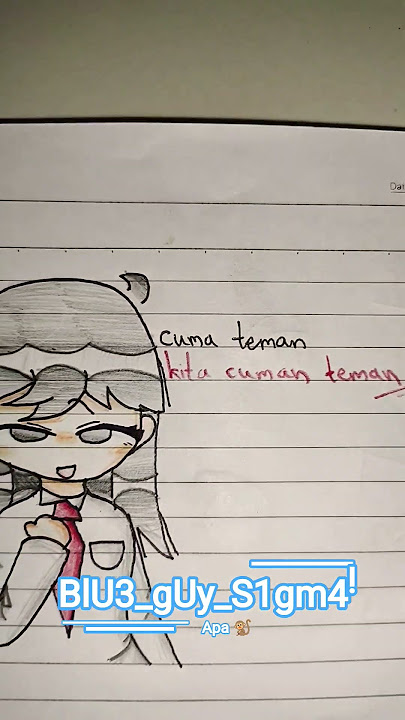 Da
cuma teman
kita cuman teman
BlU3_gUy_S1gm4!
Apa 🐒